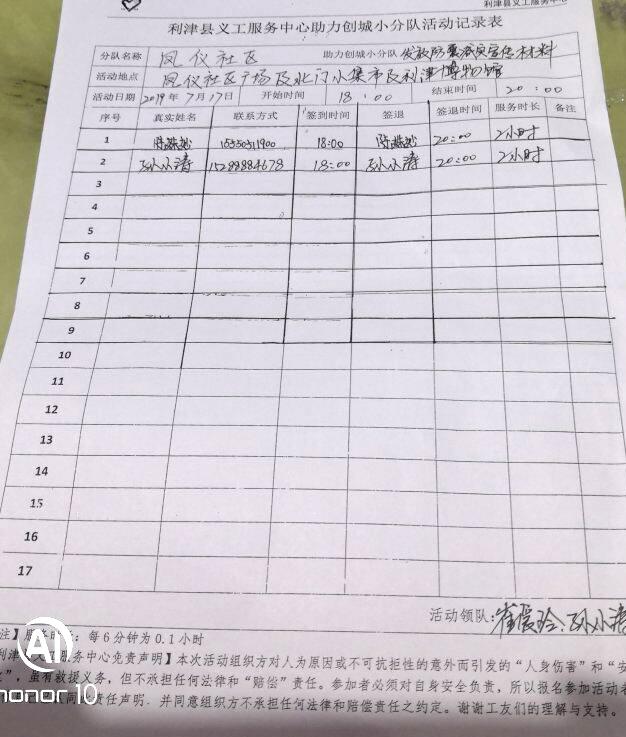 利津县义工服务中心
利津县义工服务中心助力创城小分队活动记录表
分队名称 凤仪社区 助力创城小分队 发放防震减灾宣传材料
活动地点 凤仪社区广场及北门小集市及利津博物馆
活动日期 2019年7月17日 开始时间 18:00 结束时间 20:00
序号 真实姓名 联系方式 签到时间 签退 签退时间 服务时长 备注
1 15550311900 18:00 20:00 2小时
2 孙小涛 15288884678 18:00 孙小涛 20:00 2小时
3
4
5
6
7
8
9
10
11
12
13
14
15
16
17
活动领队: 孙小涛
注】服务时长: 每6分钟为0.1小时
利津县义工服务中心免责声明】本次活动组织方对人为原因或不可抗拒性的意外而引发的“人身伤害”和“安
”,虽有救援义务,但不承担任何法律和“赔偿”责任。参加者必须对自身安全负责,所以报名参加活动者
责任声明.并同意组织方不承担任何法律和赔偿责任之约定。谢谢工友们的理解与支持。
AI
honor 10